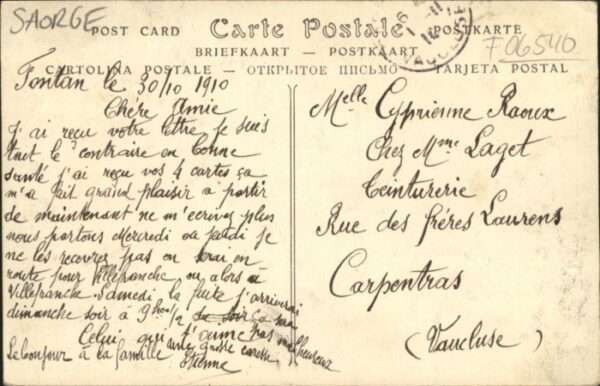 SAORGE
POST CARD Carte Postale POSTKARTE
BRIEFKAART — POSTKAART
F 06540
CARTOLINA POSTALE - ОТКРЫТОЕ ПИСЬМО - TARJETA POSTAL
VAUCLUSE
Fontan le 30/10 1910
Chère Amie
J'ai reçu votre lettre je suis
tout le contraire en bonne
santé j'ai reçu vos 4 cartes ça
m'a fait grand plaisir a partir
de maintenant ne m'ecrivez plus
nous partons Mercredi ou jeudi je
ne les recevrez pas on sera en
route pour Villefranche, ou alors à
Villefranche Samedi la fuite j'arriverai
dimanche soir à 9h 1/2 ça
Celui qui t'aime pas malheureux
une grosse caresse
Le bonjour à la famille Etienne
Melle Cyprienne Raoux
Chez Mme Laget
Teinturerie
Rue des frères Laurens
Carpentras
(Vaucluse)